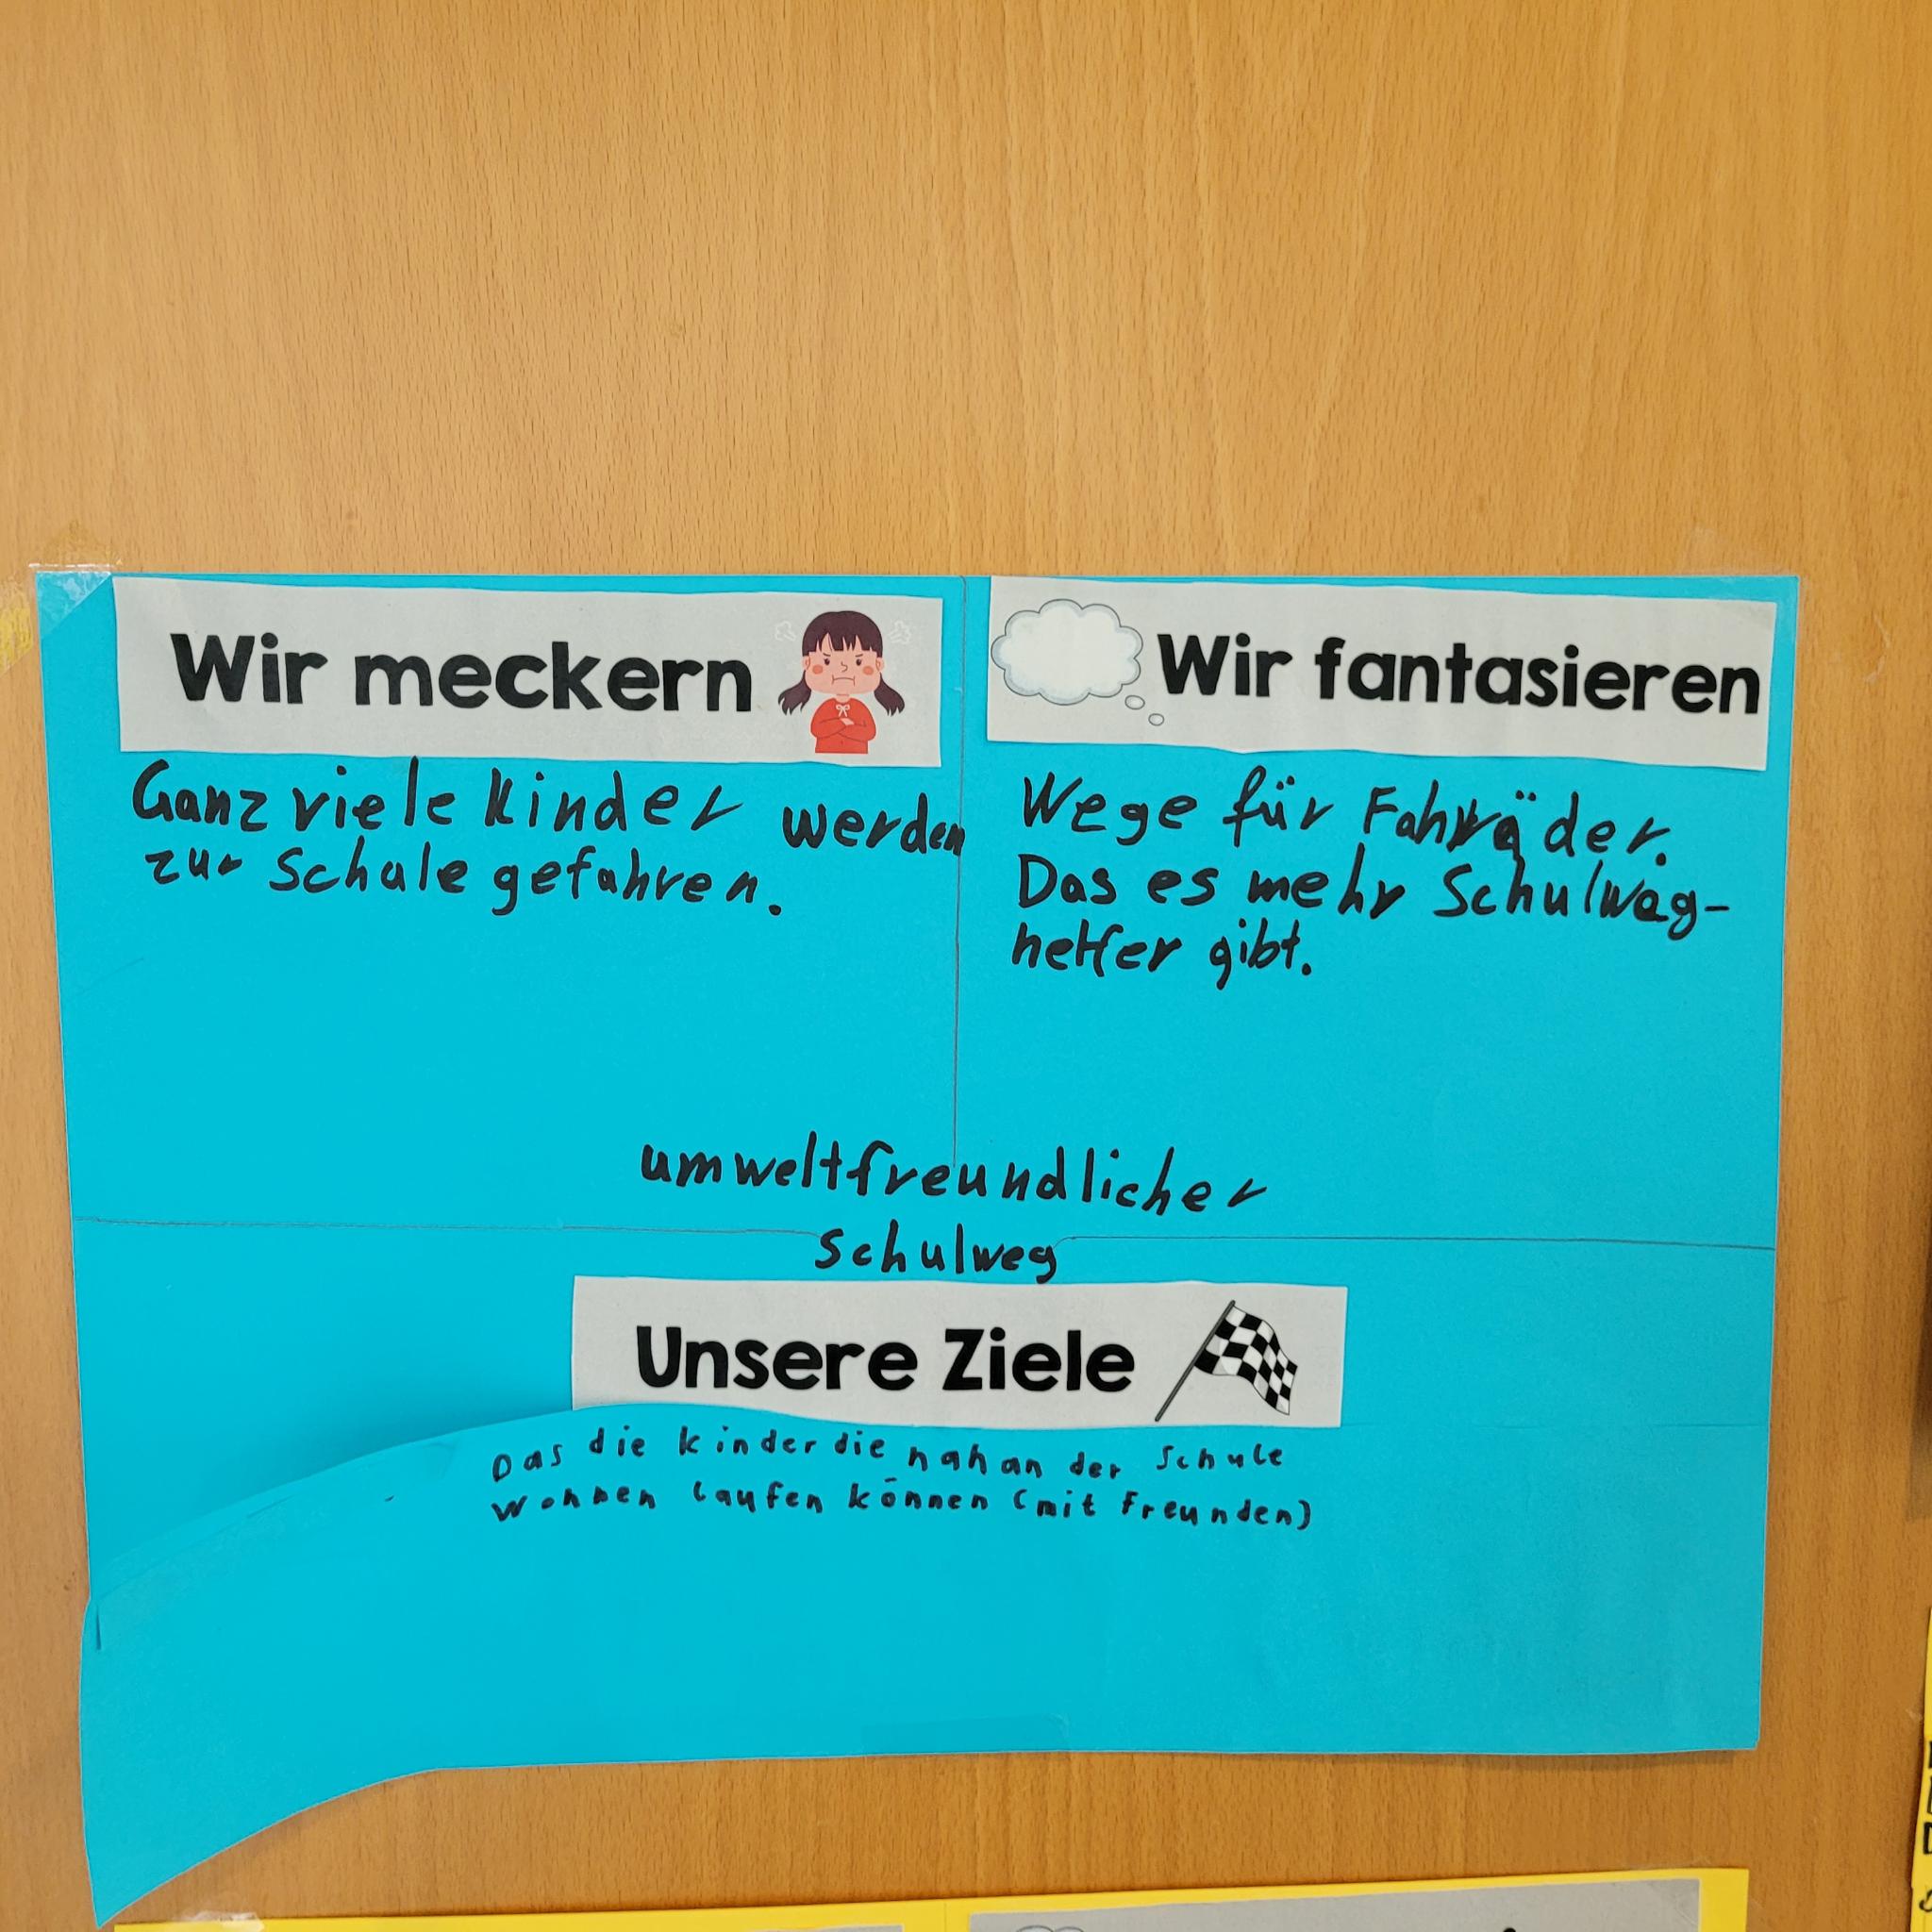 Wir meckern
Ganz viele Kinder werden
zur Schule gefahren.
Wir fantasieren
Wege für Fahrräder.
Das es mehr Schulweg-
helfer gibt.
umweltfreundlicher
Schulweg
Unsere Ziele
Das die Kinder die nah an der Schule
wohnen laufen können (mit Freunden)